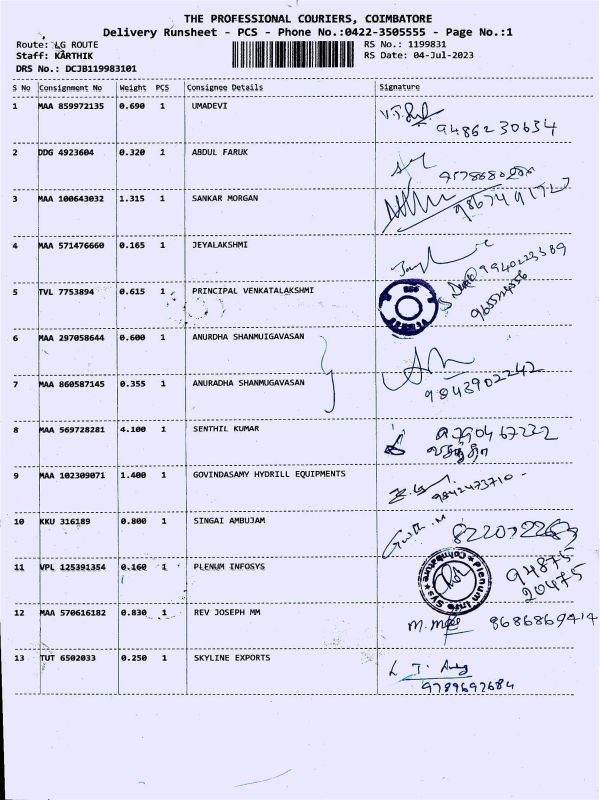 THE PROFESSIONAL COURIERS, COIMBATORE
Delivery Runsheet - PCS - Phone No.:0422-3505555 - Page No.:1
Route: LG ROUTE
RS No.: 1199831
Staff: KARTHIK
RS Date: 04-Jul-2023
DRS No.: DCJB119983101
S No Consignment No Weight PCS Consignee Details Signature
1 MAA 859972135 0.690 1 UMADEVI
9486230634
2 DDG 4923604 0.320 1 ABDUL FARUK
3 MAA 100643032 1.315 1 SANKAR MORGAN
4 MAA 571476660 0.165 1 JEYALAKSHMI
9940223589
5 TVL 7753894 0.615 1 PRINCIPAL VENKATALAKSHMI
6 MAA 297058644 0.600 1 ANURDHA SHANMUIGAVASAN
7 MAA 860587145 0.355 1 ANURADHA SHANMUGAVASAN
9843902242
8 MAA 569728281 4.100 1 SENTHIL KUMAR
வசந்தி
9 MAA 102309071 1.400 1 GOVINDASAMY HYDRILL EQUIPMENTS
9842473710
10 KKU 316189 0.800 1 SINGAI AMBUJAM
11 VPL 125391354 0.160 1 PLENUM INFOSYS
Plenum Info Sys Coimbatore
94875
20475
12 MAA 570616182 0.830 1 REV JOSEPH MM
8686869414
13 TUT 6502033 0.250 1 SKYLINE EXPORTS
9789692684